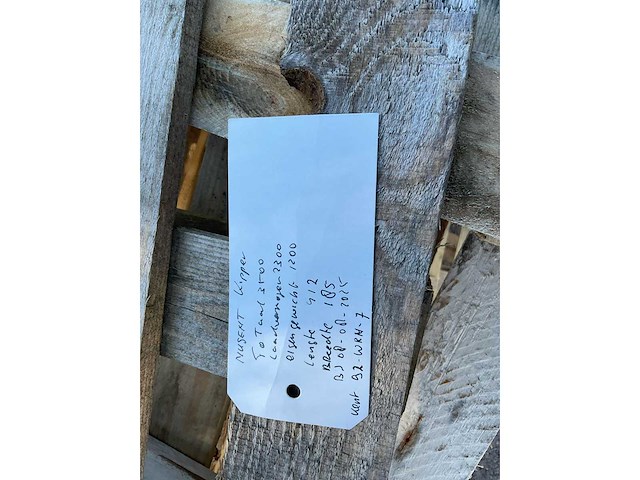 NUGENT Kipper
Totaal 3500
Laadvermogen 2300
eigengewicht 1200
Lengte 412
Breedte 185
BJ 08-08-2025
Kent 92-WRH-7